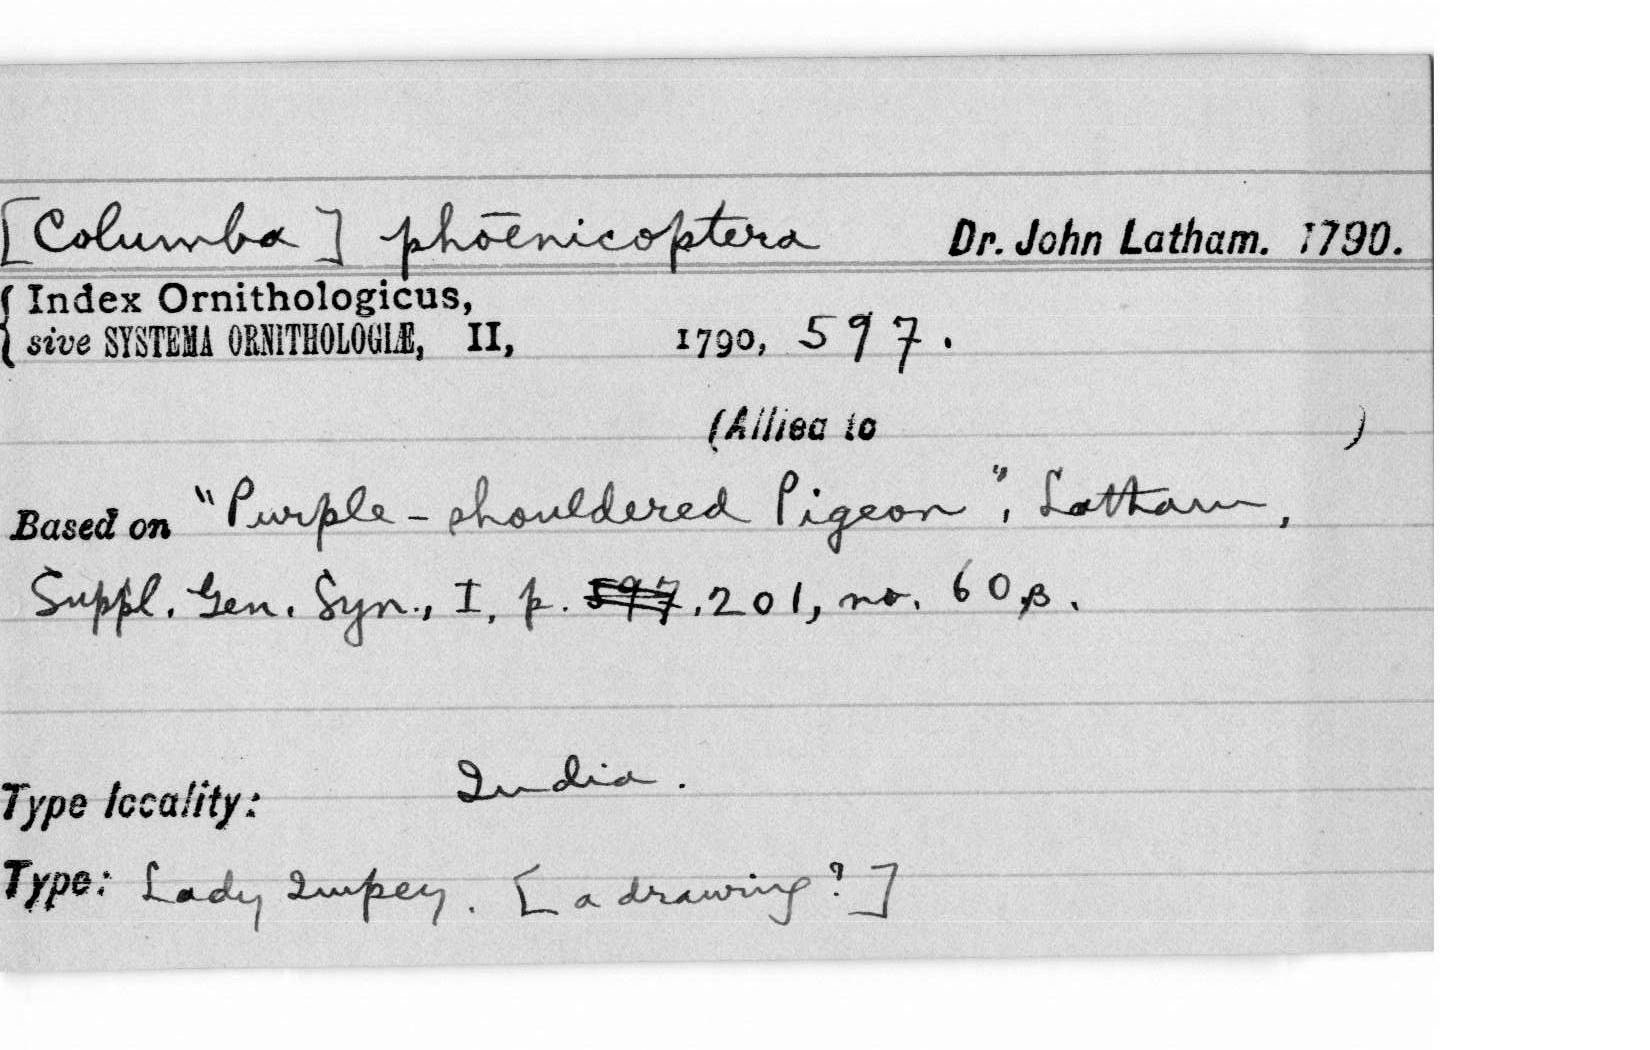 [Columba] phœnicoptera Dr. John Latham. 1790.
{ Index Ornithologicus,
sive SYSTEMA ORNITHOLOGIÆ, II, 1790, 597.
(Allied to )
Based on "Purple-shouldered Pigeon", Latham,
Suppl. Gen. Syn., I, p. 597, 201, no. 60β.
Type locality: India.
Type: Lady Impey. [a drawing?]